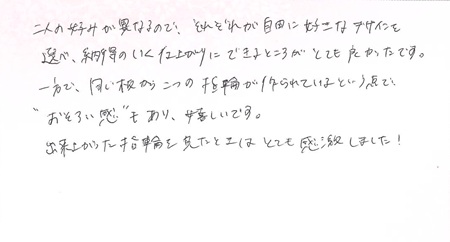 二人の好みが異なるので、それぞれが自由に好きなデザインを
選べ、納得のいく仕上がりにできるところがとても良かったです。
一方で、同じ板から二つの指輪が作られているという点で
"おそろい感"もあり、嬉しいです。
出来上がった指輪を見たときはとても感激しました！